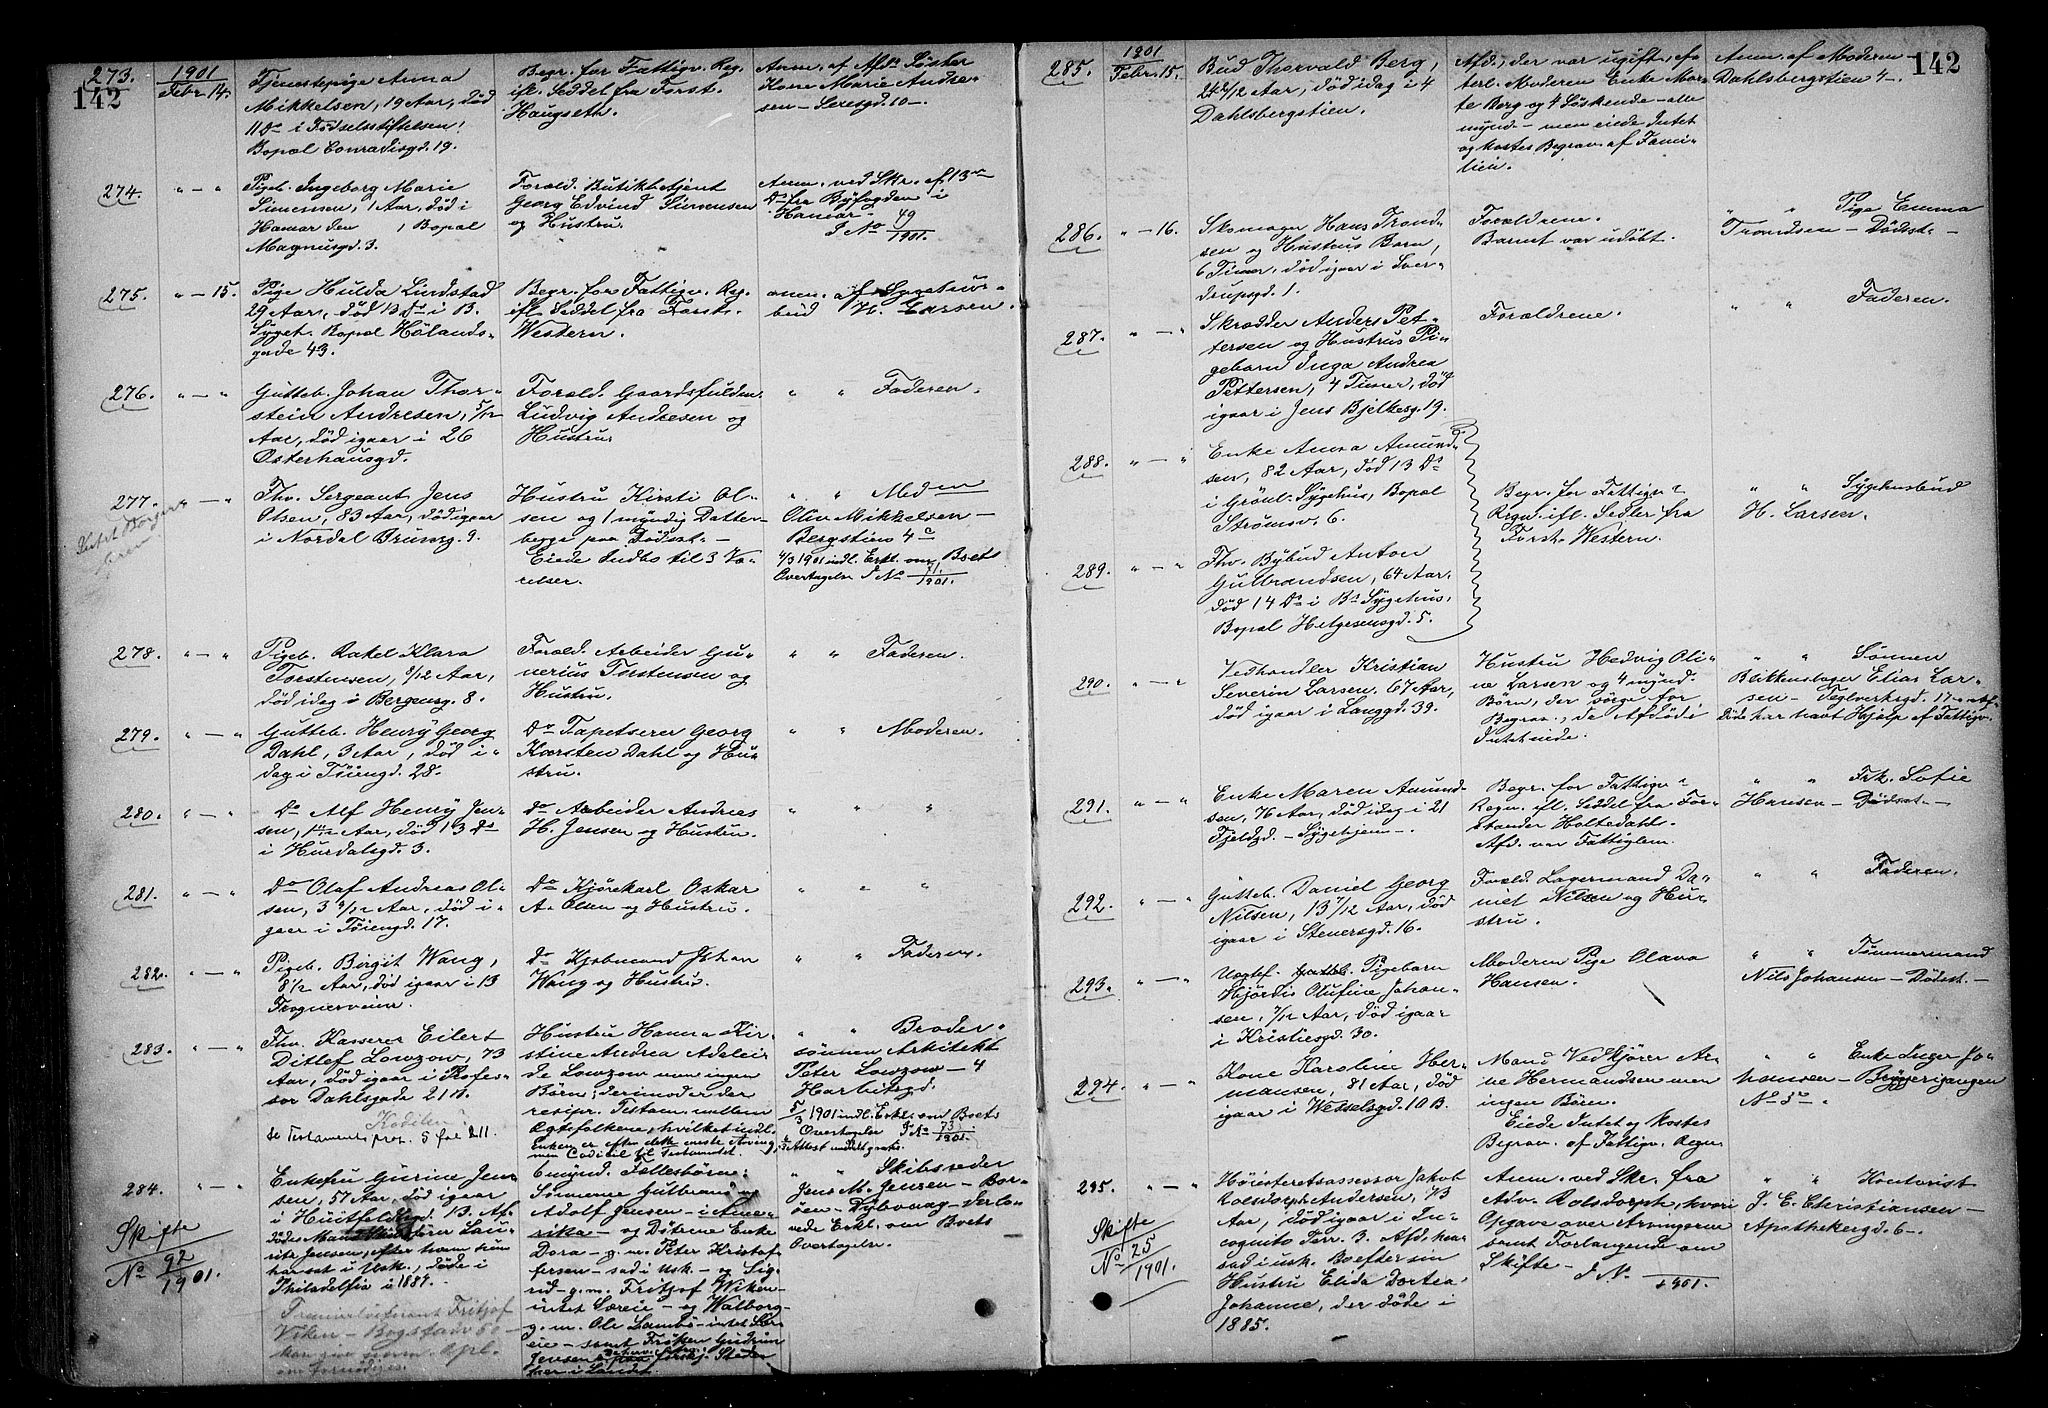 142
273.
1901
Febr. 14.
Tjenestepige Anna
Mikkelsen, 19 Aar, död
11 Ds i Fødselsstiftelsen!
Bopæl Conradisgd. 19.
Begr. for Fattigv. Reg.
ifl. Seddel fra Forst.
Haugseth.
Anm. af Afds Söster
Kone Marie Andre-
sen – 10 –
274.
" – "
Pigeb. Ingeborg Marie
Simensen, 1 Aar, död i
Hamar den 1 Bopæl
Magnusgd. 3.
Foræld. Butikbetjent
Georg Edvind Simensen
og Hustru.
Anm. ved Skr. af 13de
Ds fra Byfogden i
Hamar.
J No 49/1901.
275.
" – 15.
Pige Hulda Lindstad
29 Aar, død 13 Ds i B.
Syget. Bopæl Hölands-
gade 43.
Begr. for Fattigv. Reg.
ifl. Seddel fra Forst.
Western.
anm. af Sygehus-
bud H. Larsen.
276.
" – "
Gutteb. Johan Thor-
stein Andresen, 5/12
Aar, död igaar i 26
Osterhausgd.
Foræld. Gaardsfuldm.
Ludvig Andresen og
Hustru.
" " Faderen.
277.
" – "
Fhv. Sergeant Jens
Olsen, 83 Aar, död igaar
i Nordal Brunsg. 9.
Hustru Kirsti Ol-
sen og 1 myndig Datter
begge paa Dödsst. –
Eiede Indbo til 3 Væ-
relser.
" " Madm
Olin Mikkelsen –
Bergstien 4 c
4/3 1901 indl. Erkl. om Boets
Overtagelse J No 71/1901.
278.
" – "
Pigeb. Rakel Klara
Torstensen, 8/12 Aar,
död idag i Bergensg. 8.
Foræld. Arbeider Gu-
nerius Torstensen og
Hustru.
" " Faderen.
279.
" – "
Gutteb. Henry Georg
Dahl, 3 Aar, död i-
dag i Töiengd. 28.
Do Tapetserer Georg
Karsten Dahl og Hu-
stru.
" " Moderen.
280.
" – "
Do Alf Henry Jen-
sen, Aar, död 13 Ds
i Hurdalsgd. 3.
do Arbeider Andreas
H. Jensen og Hustru.
" " "
281.
" – "
Do Olaf Andreas Ol-
sen, 3 Aar, död i-
gaar i Töiengd. 17.
Do Kjörekarl Oskar
A. Olsen og Hustru.
" " "
282.
" – "
Pigeb. Birgit Wang,
8/12 Aar, död igaar i 13
Frognerveien.
Do Kjøbmand Johan
Wang og Hustru.
" " Faderen.
283.
" – "
Fhv. Kasserer Eilert
Ditlef Lowzow, 73
Aar, död igaar i Profes-
sor Dahlsgade 21 B.
se Testamentsprot. 5 fol 211.
Hustru Hanna Kir-
stine Andrea Adelei-
de Lowzow men ingen
Börn; derimod er der
resipr. Testam. mellem
Ægtefolkene, hvilket indl.
Enken er efter dette eneste Arving
men Codicil til Testamentet.
" " Broder-
sönnen Arkitekt
Peter Lowzow – 4
Harbitzgd.
5/3 1901 indl. Erkl. om Boets
Overtagelse J No 73/1901.
284.
" – "
Skifte
No 92/1901.
Enkefru Gurine Jen-
sen, 57 Aar, död igaar
i Huitfeldtsgd. 13. Af-
döde Mand Lau-
ritz Jensen, efter hvem hun
hensat i Usk., döde i
Philadelfia i 1889.
Fritjof
Viken – Bogstadv 50 –
Emynd. Fællesbörn:
Sönnerne Gulbrand og
Adolf Jensen – i Ame-
rika – og Döttrene Enke
Dora – g. m. Peter Kristof-
fersen – sad i Usk. – og Sig-
rid – g. m. Fritjof Wiken –
intet Særeie – og Walborg –
g. m. Ole Lambö – intet Sær-
eie – samt Fröken Gudrun
Jensen – paa forskj. Steder
her i Landet.
" " Skibsreder
Jens M. Jensen – Bor-
öen – Dybvaag – Verlo-
vede Erkl. om Boets
Overtagelse.
142
285.
1901
Febr. 15.
Bud Thorvald Berg,
Aar, död idag i 4
Dahlsbergstien.
Afd., der var ugift, ef-
terl. Moderen Enke Mar-
te Berg og 4 Söskende – alle
mynd. – men eiede Intet
og kostes Begrav. af Fami-
lien.
Anm. af Moderen –
Dahlsbergstien 4 –.
286.
" – 16.
Skomager Hans Trond-
sen og Hustrus Barn,
6 Timer, död igaar i Sver-
drupsgd. 1.
Forældrene.
Barnet var udöbt.
" " Pige Emma
Trondsen – Dödsst. –
287.
" – "
Skrædder Anders Pet-
tersen og Hustrus Pi-
gebarn Inga Andrea
Pettersen, 4 Timer, död
igaar i Jens Bjelkesg. 19.
Forældrene.
" " Faderen.
288.
" – "
Enke Anna Amund-
sen, 82 Aar, död 13 Ds
i Grönl. Sygehus, Bopæl
Strömsv. 6.
Begr. for Fattigv.
Regn. ifl. Sedler fra
Forst. Western.
" " Sygehusbud
H. Larsen.
289.
" – "
Fhv. Bybud Anton
Gulbrandsen, 64 Aar,
död 14 Ds i Bs Sygehus,
Bopæl Helgesensgd. 5.
290.
" – "
Vedhandler Kristian
Severin Larsen, 67 Aar,
död igaar i Langgd. 39.
Hustru Hedvig Oli-
ne Larsen og 4 mynd.
Börn, der sörge for
Begrav., da Afdöde
Intet eiede.
" " Sönnen
Blikkenslager Elias Lar-
sen – Teglverksgd. 17 – Af-
döde har havt Hjælp af Fattigv.
291.
" – "
Enke Maren Amund-
sen, 76 Aar, död idag i 21
Fjeldgd. – Sygehjem –.
Begr. for Fattigv.
Regn. ifl. Seddel fra For-
stander Holtedahl.
Afd. var Fattiglem.
" " Frk. Sofie
Hansen – Dödsst. –
292.
" – "
Gutteb. Daniel Georg
Nilsen, 13 7/12 Aar, död
igaar i Steversgd. 16.
Foræld. Lagermand Da-
niel Nilsen og Hu-
stru.
" " Faderen.
293.
" – "
Uægtef. Pigebarn
Hjördis Olufine Johan-
sen, 7/12 Aar, död igaar
i Kristiesgd. 30.
Moderen Pige Olava
Hansen.
" " Tömmermand
Nils Johansen – Dödsst. –
294.
" – "
Kone Karoline Her-
mansen, 81 Aar, död
igaar i Wesselsgd. 10 B.
Mand Vedkjører Ar-
ne Hermandsen men
ingen Börn.
Eiede Intet og kostes
Begrav. af Fattigv. Regn.
" " Enke Inger Jo-
hansen – Bryggerigangen
No 3 –.
295.
" – "
Skifte
No 25/1901.
Höiesteretsassessor Jakob
Rolsdorph Andersen, 73
Aar, död igaar i In-
cognito Terr. 3. Afd. hen-
sad i usk. Bo efter sin
Hustru Elida Dortea
Johanne, der döde i
1885.
Anm. ved Skr. fra
Adv. Rolsdorph, hvori
Opgave over Arvingerne
samt Forlangende om
Skifte –
J No /1901.
" " Kontorist
J. E. Christiansen –
Apothekergd. 6 –.